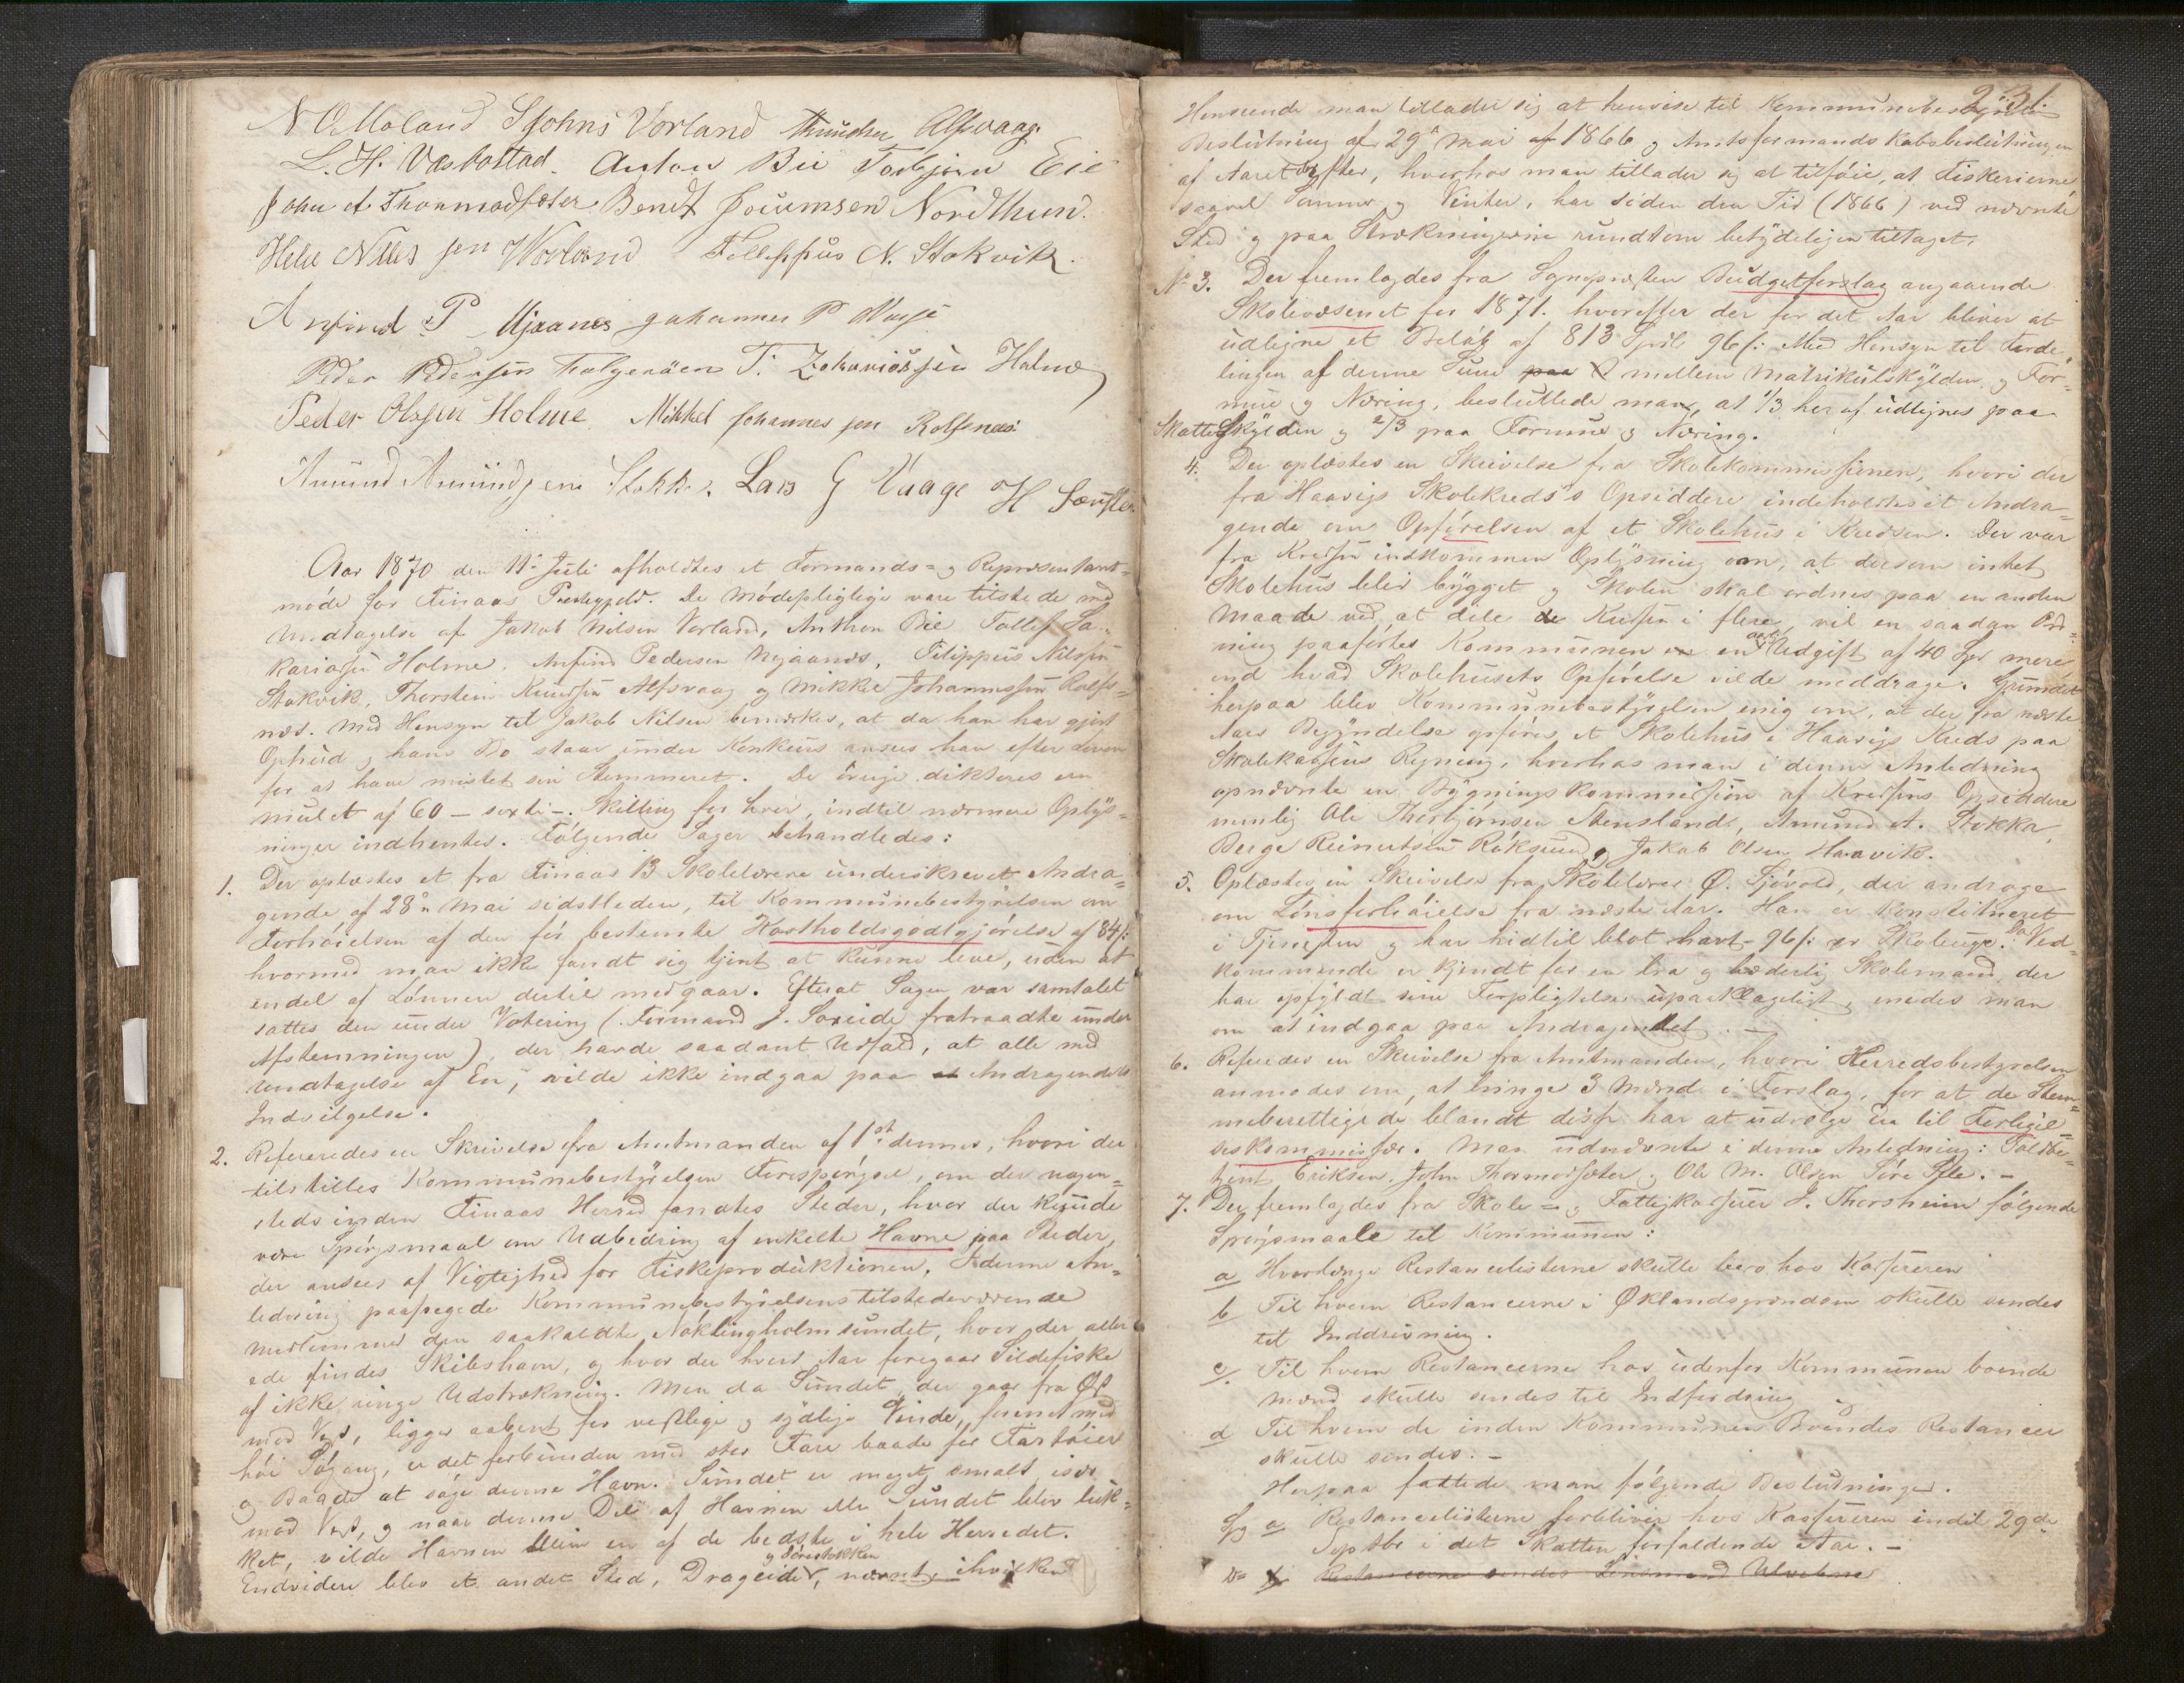 N O Moland S Johns Vorland Alfsvaag
L. H. Vasbottad. Anton Bie Torbjørn Eie
John A Thormodsæter. Bendt Joiumsen Nordthun.
Helle Nilssen Worland Fillippus N. Stokvik.
Anfind P Ujaanes Johannes P Mosje
Peder Pedersen Folgerøen T. Zakariassen Holme
Peder Olssen Holme. Mikkel Johannes sen Rolfsnæs.
Amund Amundsen Stokke. Lars G Vaage H
Aar 1870 den 11te Juli afholdtes et Formands- og Repræsentant-
møde for Finaas Prestegjeld. De mødepligtige vare tilstede med
Undtagelse af Jakob Nilsen Vorland, Anthon Bie Tollef Za-
kariassen Holme, Anfind Pedersen Ujaanes, Filippus Nilssen
Stokvik, Thorstein Knudsen Alfsvaag og Mikkel Johannessen Rolfs-
næs. Med Hensyn til Jakob Nilsen bemærkes, at da han har gjort
Ophud og hans Bo staar under Konkurs ansees han efter Loven
for at have mistet sin Stemmeret. De øvrige dikteres en
mulct af 60 - sexti - Skilling for hver, indtil nærmere Oplys-
ninger indhentes. Følgende Sager behandledes:
1. Der oplæstes et fra Finaas 13 Skolelærere underskrevet Andra-
gende af 28de Mai sidstleden, til Kommunebestyrelsen om
Forhøielsen af den før bestemte Kostholdsgodtgjørelse af 84 s:
hvormed man ikke fandt sig tjent at kunne leve, uden at
endel af Lønnen dertil medgaar. Efterat Sagen var samtalet
sattes den under Votering (Formand J. Særeide fratraadte under
Afstemningen), der havde saadant Udfald, at alle med
Undtagelse af En, vilde ikke indgaa paa Andragendets
Indvilgelse.
2. Refereredes en Skrivelse fra Amtmanden af 1ste dennes, hvori der
tilstilles Kommunebestyrelsen Forespørgsel, om der nogen-
steds inden Finaas Herred fandtes Steder, hvor der kunde
være Spørgsmaal om Udbedring af enkelte Havne paa Steder,
der ansees af Vigtighed for Fiskeproduktionen. I denne An-
ledning paapegede Kommunebestyrelsens tilstedeværende
Medlemmer den saakaldte Nøklingholmsundet, hvor der aller
ede findes Skibshavn, og hvor der hvert Aar foregaar Sildefiske
af ikke ringe Udstrækning. Men da Sundet, der gaar fra Øst
mod Vest, ligger aabent for vestlige og sydlige Vinde, forenet med
høi Søgang, er det forbunden med stor Fare baade for Fartøier
og Baade at søge denne Havn. Sundet er meget smalt især
mod Vest, og naar denne Del af Havnen eller Sundet blev luk-
ket, vilde Havnen blive en af de bedste i hele Herredet.
Endvidere blev et andet Sted, Drageidet og Torestokken, nævnt, ihvilken
231.
Henseende man tillader sig at henvise til Kommunebestyrelsens
Beslutning af 29de Mai 1866 og Amtsformandskabsbeslutningen
af Aaret efter, hverhos man tillader sig at tilføie, at Fiskerierne
saavel Sommer og Vinter, har siden den Tid (1866) ved nævnte
Sted og paa Strækningerne rundtom betydeligen tiltaget.
No 3. Der fremlagdes fra Sognepresten Budgetforslag angaaende
Skolevæsenet for 1871. hvorefter der for det Aar bliver at
udligne et Beløb af 813 Spd 96 s: Med Hensyn til Forde-
lingen af denne Sum paa mellem Matrikulskylden og For-
mue og Næring, besluttede man, at 1/3 heraf udlignes paa
Matrikulskylden og 2/3 paa Formue og Næring.
4. Der oplæstes en Skrivelse fra Skolekommissionen, hvori der
fra Haavigs Skolekreds's Opsiddere indeholdtes et Andra-
gende om Opførelsen af et Skolehus i Kredsen. Der var
fra Kredsen indkommen Oplysning om, at dersom intet
Skolehus blev bygget og Skolen skal ordnes paa en anden
Maade ved at dele Kredsen i flere, vil en saadan Ord-
ning paaføres Kommunen en aarl Udgift af 40 Spd mere
end hvad Skolehusets Opførelse vilde meddrage. Grundet
herpaa blev Kommunebestyrelsen enig om, at der fra næste
Aars Begyndelse opføres et Skolehus i Haavigs Kreds paa
Skolekassens Regning, hverhos man i denne Anledning
opnævnte en Bygningskommission af Kredsens Opsiddere
nemlig Ole Thorbjørnsen Stensland, Amund A. Stokka,
Berge Reinertsen Røksund og Jakob Olsen Haavik.
5. Oplæstes en Skrivelse fra Skolelærer Ø. Sjøvold, der androge
om Lønsforhøielse fra næste Aar. Han er konstitueret
i Tjenesten og har hidtil blot havt 96 s: pr Skoleuge. Da Ved-
kommende er kjendt for en bra og hæderlig Skolemand, der
har opfyldt sine Forpligtelser upaaklageligt, enedes man
om at indgaa paa Andragendet. -
6. Referedes en Skrivelse fra Amtmanden, hvori Herredsbestyrelsen
anmodes om, at bringe 3 Mænd i Forslag, for at de Stem-
meberettigede blandt disse har at udvælge En til Forligel-
seskommissær. Man udnævnte i denne Anledning: Toldbe-
tjent Eriksen, John Thormodsæter og Ole M. Olsen Løre Ytre. -
7. Der fremlagdes fra Skole- og Fattigkasserer J. Thorsheim følgende
Spørgsmaale til Kommunen:
a Hvorlænge Restancelisterne skulle bero hos Kassereren
b Til hvem Restancerne i Øklandsgrænden skulle sendes
til Inddrivning.
c/ Til hvem Restancerne hos udenfor Kommunen boende
Mænd skulle sendes til Indfordring og
d Til hvem de inden Kommunen Boendes Restancer
skulle sendes. -
Herpaa fattede man følgende Beslutninger.
Sp a Restancelisterne forbliver hos Kassereren indtil 29de
Septbr i det Skatten forfaldende Aar. -
Do Restancerne sendes Lensmand Ulvebne